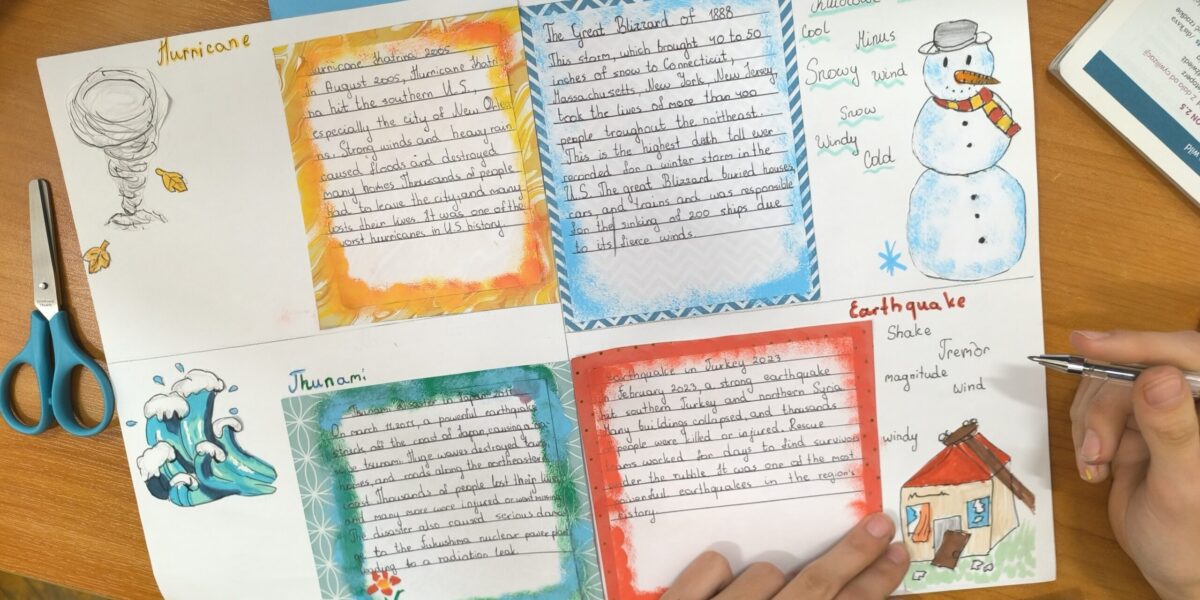 Hurricane
Hurricane Khatrina 2005
In August 2005, Hurricane Khatri-
na hit the southern U.S.,
especially the city of New
ns. Strong winds and heavy rain
caused floods and destroyed
many homes. Thousands of people
had to leave the city and many
losts their lives. It was one of the
worst hurricanes in U.S history
The Great Blizzard of 1888
This storm, which brought 40 to 50
inches of snow to Connecticut,
Massachusetts, New York, New Jersey,
took the lives of more than 400
people troughout the northeast.
This is the highest deth toll ever
recorded for a winter storm in the
U.S. The great Blizzard buried houses
cars, and trains and was responsible
for the sinking of 200 ships due
to its fierce winds
Cool
Minus
Snowy
Wind
Snow
Windy
Cold
Thunami
On march 11, 2011, a powerful earthquake
struck off the coast of Japan, causing a
tsunami. Huge waves destroyed towns,
homes, and roads along the northeastern
coast. Thousands of people lost their lives
and many more were injured or went missing
The disaster also caused serious dama-
ge to the fukushima nuclear power plant
leading to a radiation leak.
Earthquake
Earthquake in Turkey 2023
In February 2023, a strong earthquake
hit southern Turkey and northern Syria
Many buildings collapsed, and thousands
of people were killed or injured. Rescue
teams worked for days to find survivors
under the rubble. It was one of the most
powerful earthquakes in the region's
history.
Shake
Tremor
magnitude
wind
windy